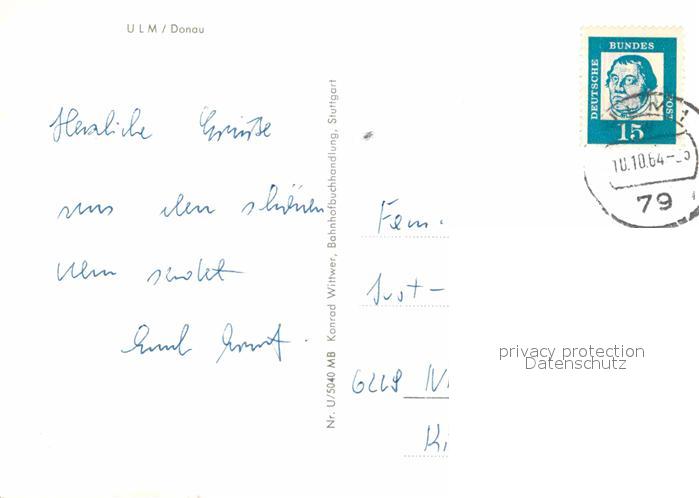 ULM / Donau
Herzliche Grüße
aus dem schönen
Ulm sendet
Nr. U/5040 MB Konrad Wittwer, Bahnhofbuchhandlung, Stuttgart
DEUTSCHE BUNDESPOST
15
10.10.64
79
Fam.
privacy protection
Datenschutz